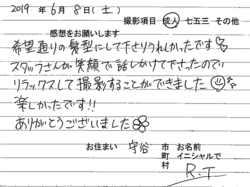 2019年 6月 8日(土)
撮影項目 成人 七五三 その他
感想をお願いします
希望通りの髪型にして下さりうれしかったです
スタッフさんが笑顔で話しかけて下さったので
リラックスして撮影することができました
楽しかったです!!
ありがとうございました
お住まい 守谷 市町村 お名前イニシャルで R.T